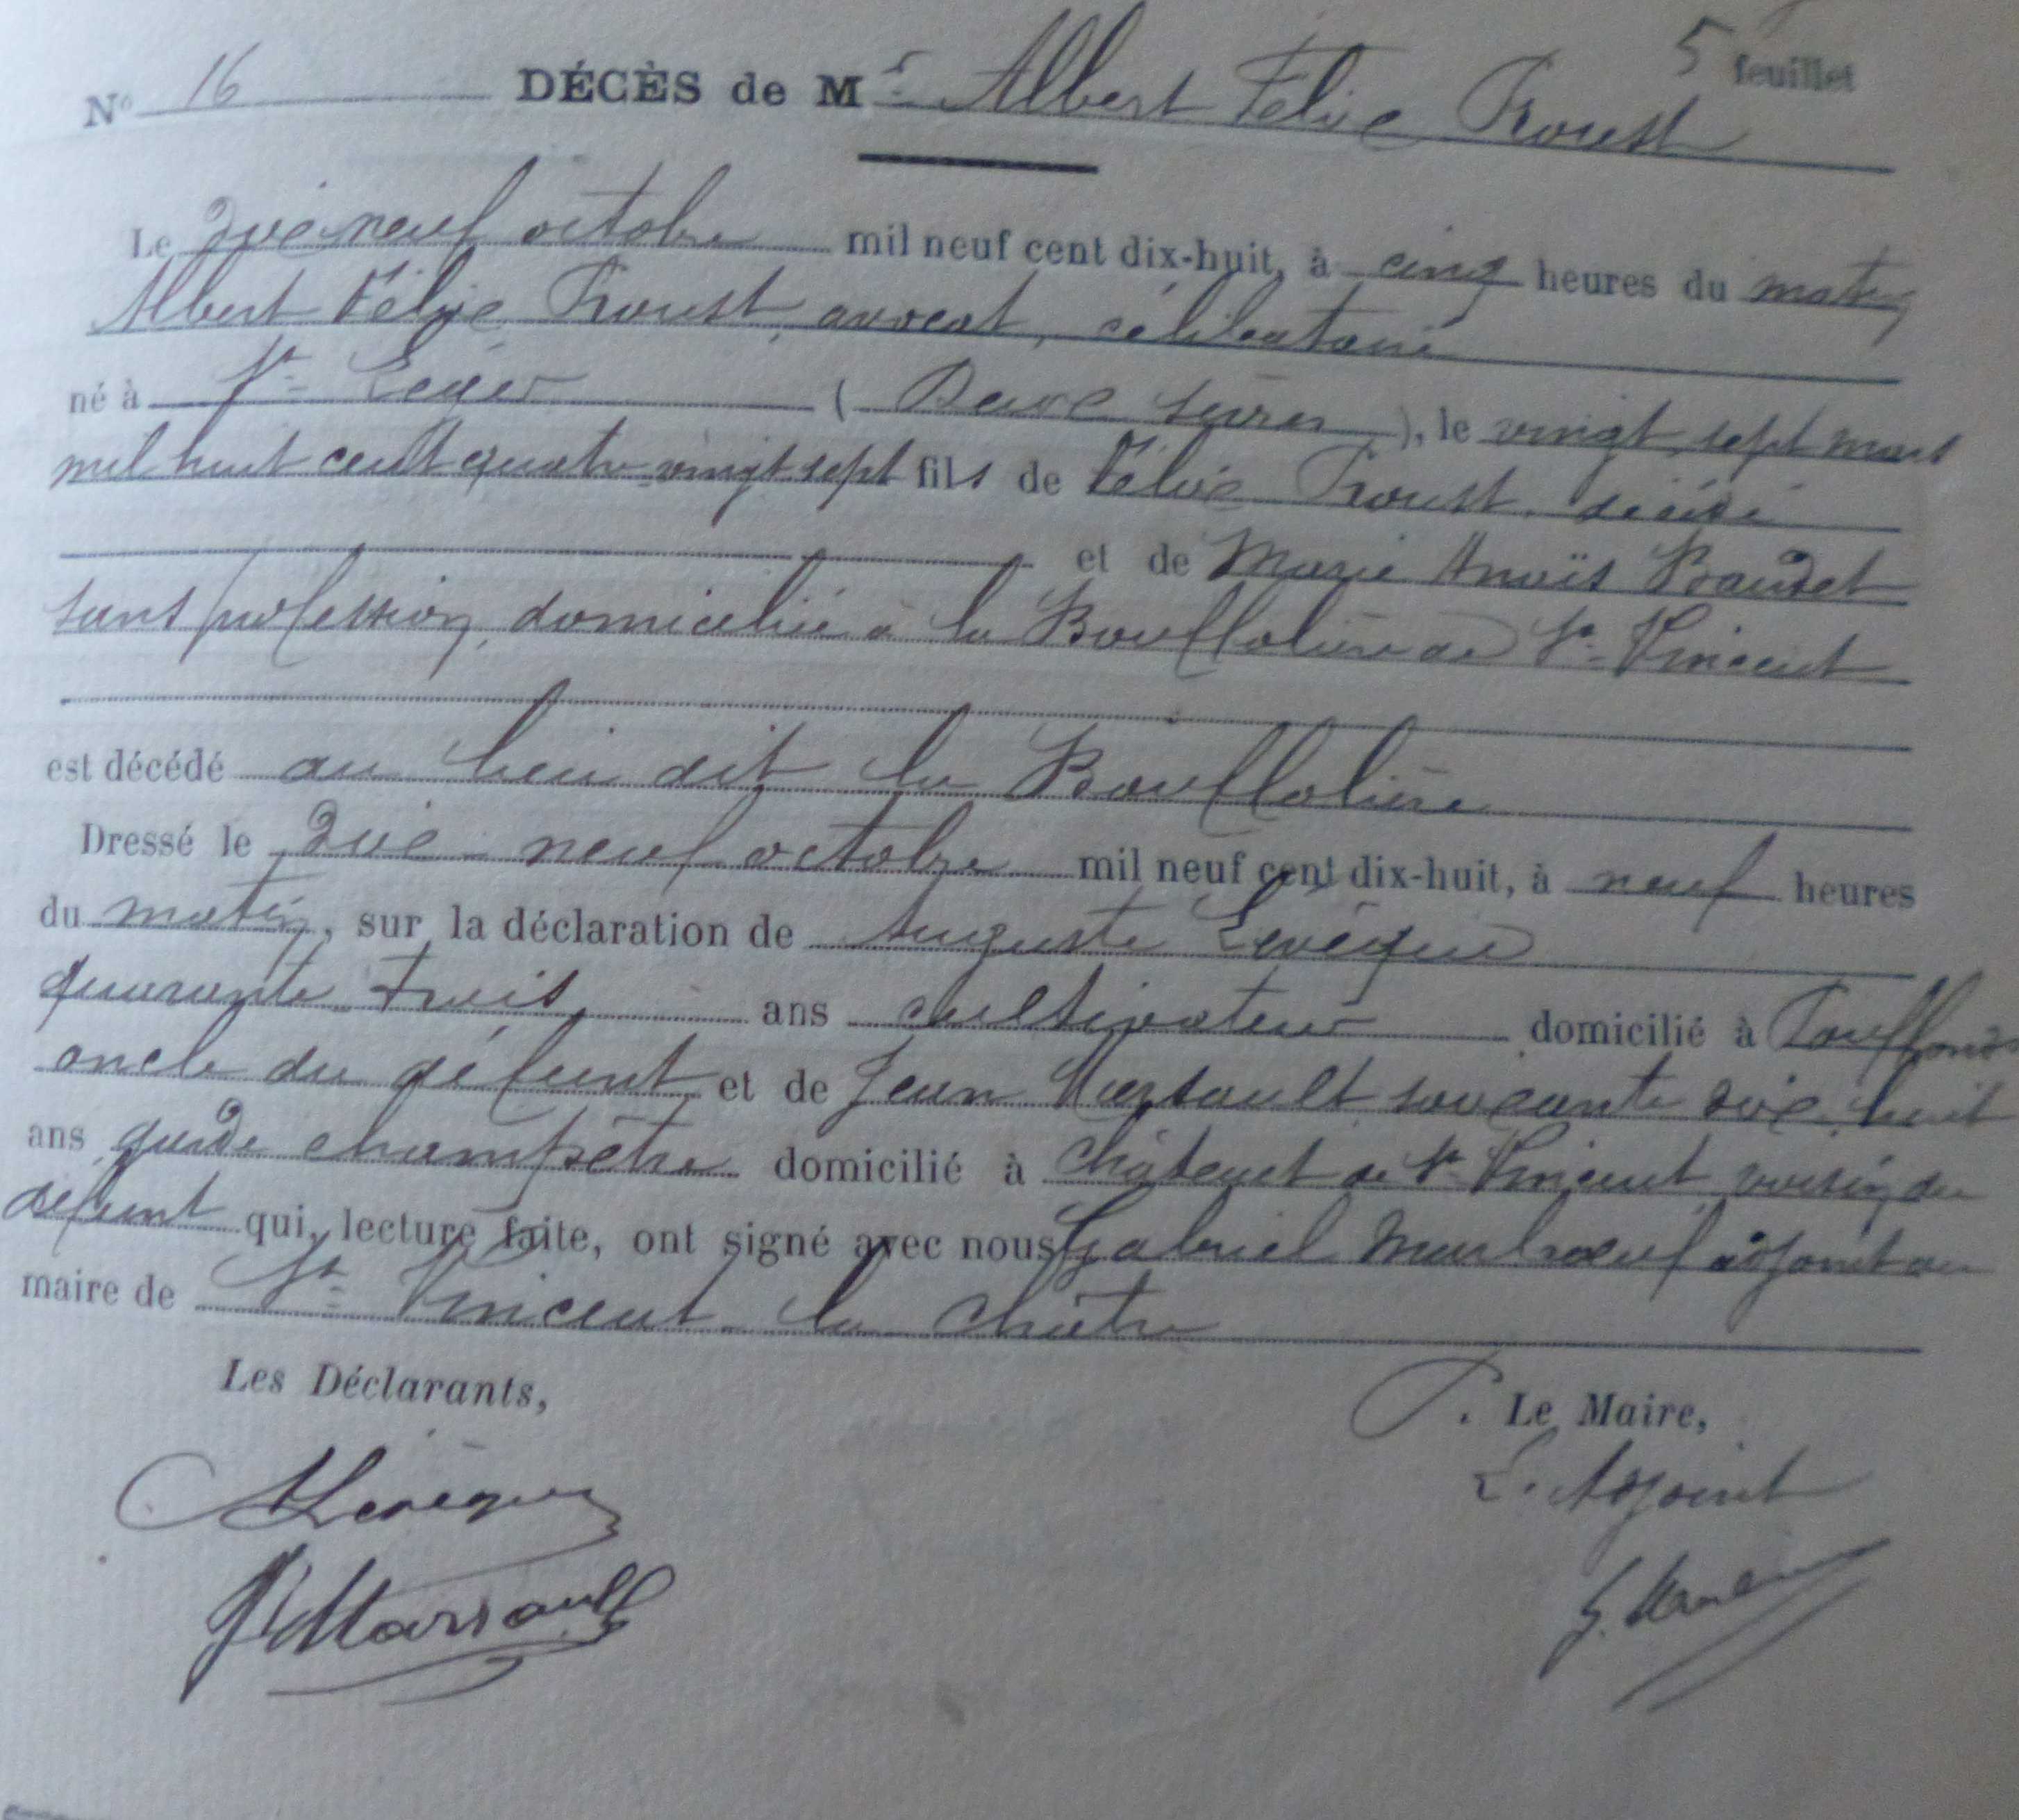 5 feuillet
N° 16 DÉCÈS de Mr Albert Félix Proust
Le dix neuf octobre mil neuf cent dix-huit, à cinq heures du matin
Albert Félix Proust, avocat, célibataire
né à St Léger (Deux Sèvres), le vingt sept mars
mil huit cent quatre vingt sept fils de Félix Proust, décédé
et de Marie Anaïs Baudet
sans profession, domiciliée à la Bouffolière de St Vincent
est décédé au lieu dit la Bouffolière
Dressé le dix-neuf octobre mil neuf cent dix-huit, à neuf heures
du matin, sur la déclaration de Auguste Levêque
quarante trois ans cultivateur domicilié à
oncle du défunt et de Jean Marsault soixante dix huit
ans garde champêtre domicilié à Châtenet de St Vincent voisin du
défunt qui, lecture faite, ont signé avec nous Gabriel adjoint au
maire de St Vincent la Châtre
Les Déclarants,
P. Le Maire,
L'Adjoint
A Levêque
Marsault